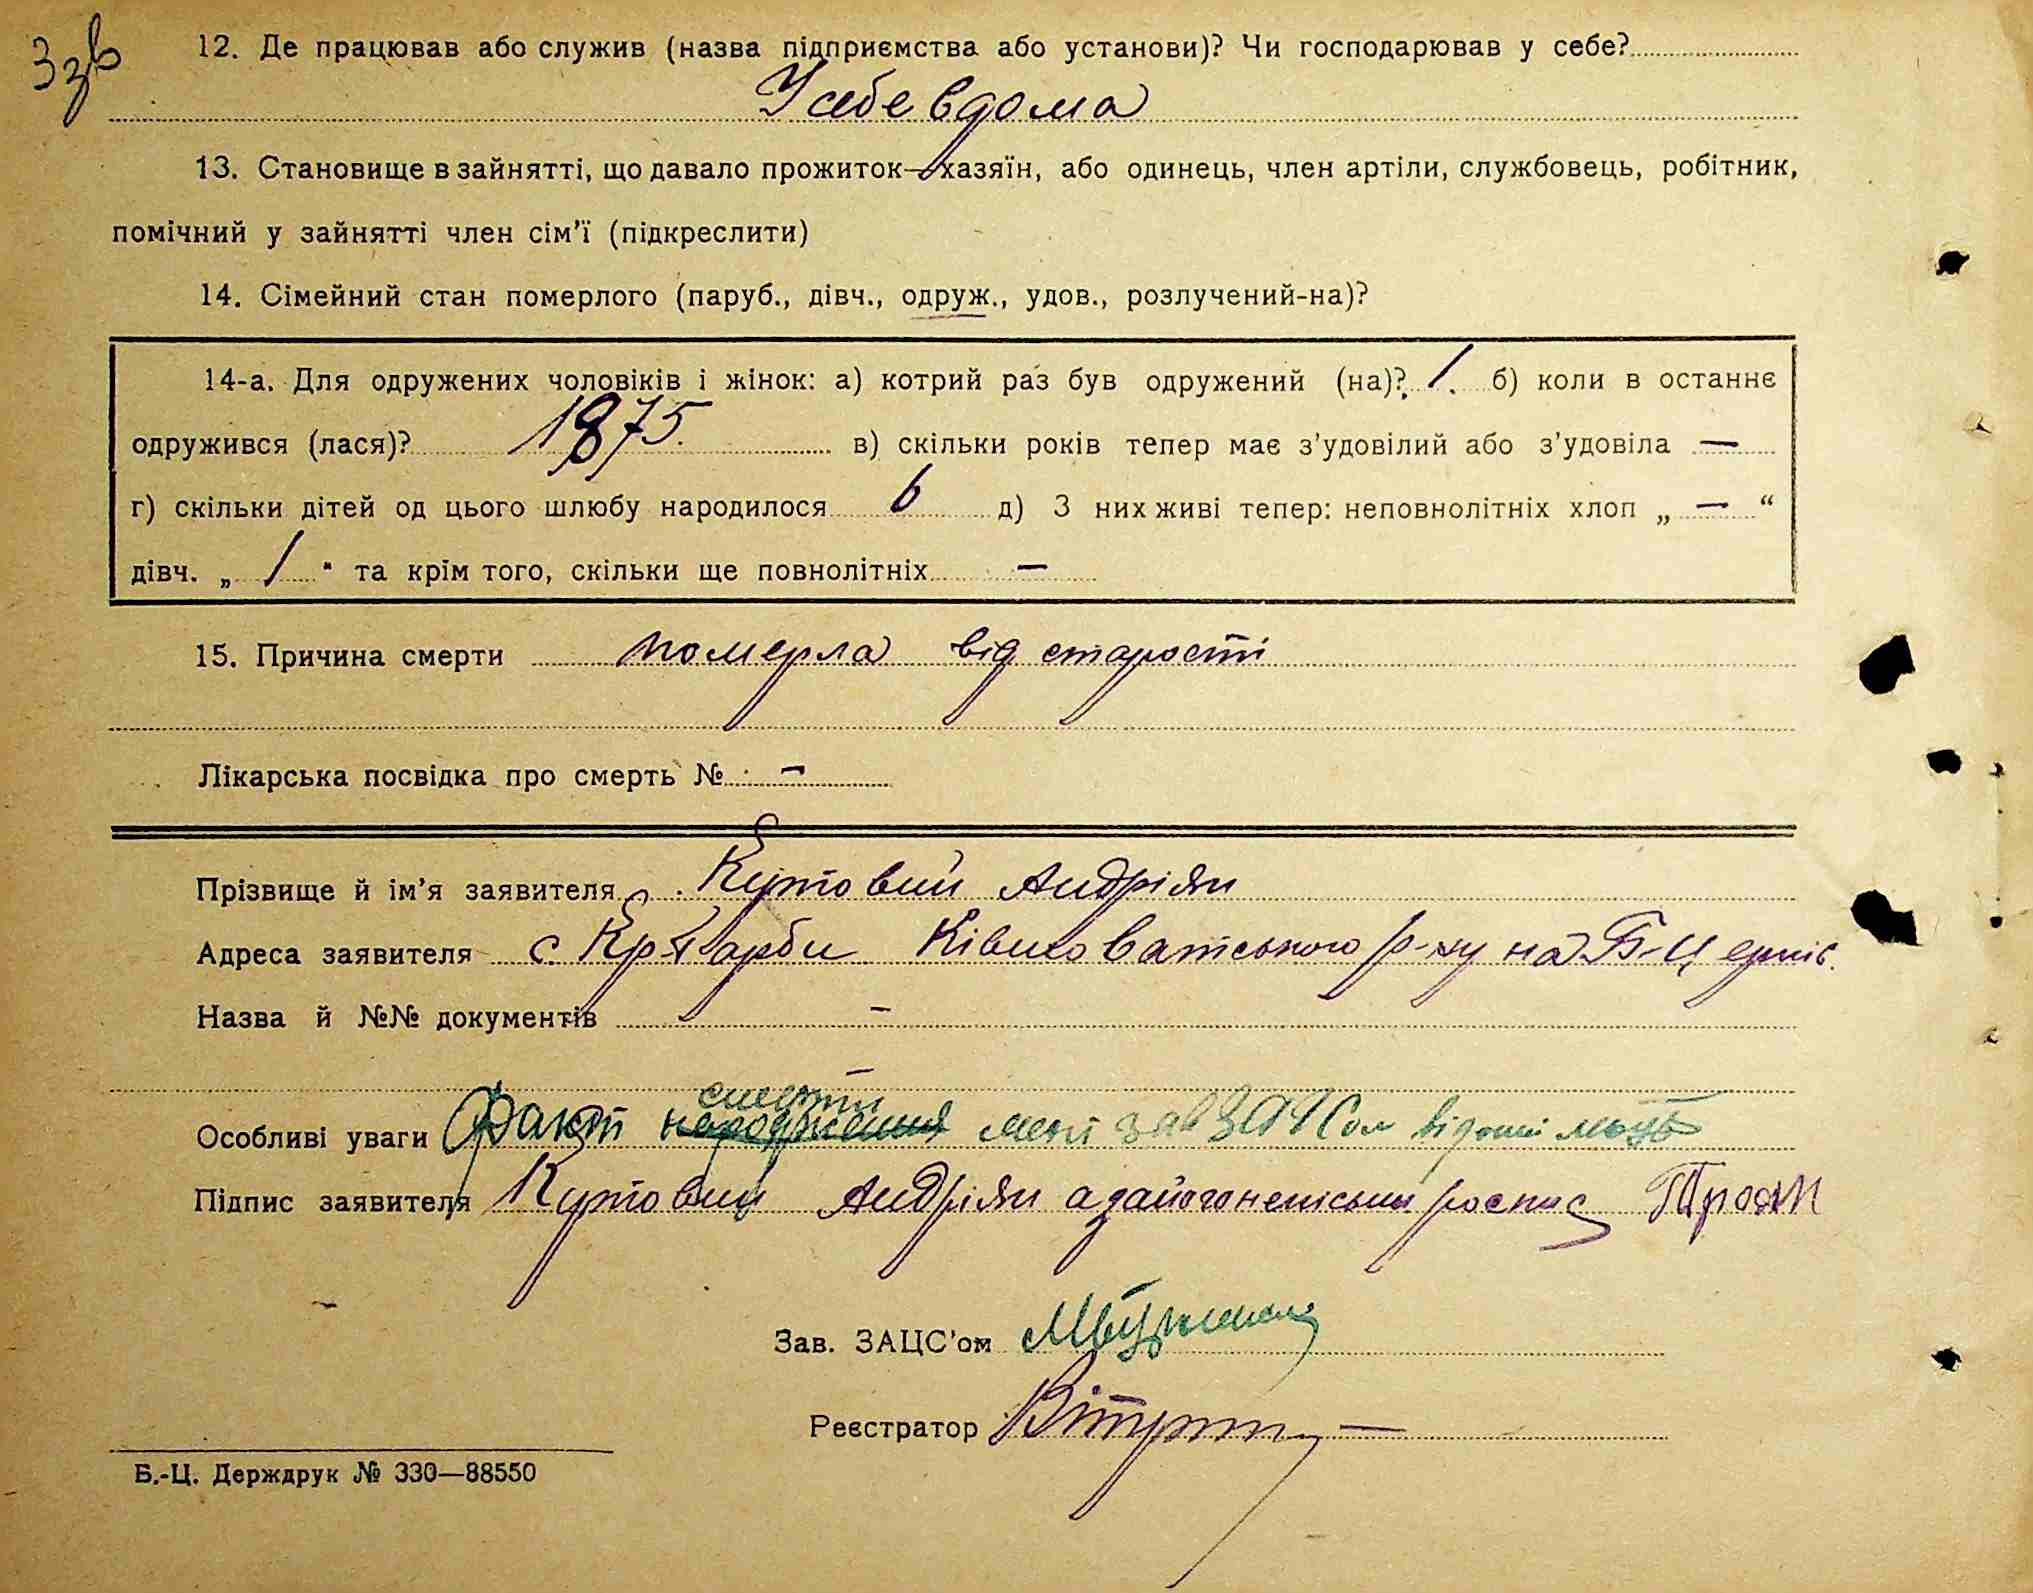 3зв
12. Де працював або служив (назва підприємства або установи)? Чи господарював у себе?
У себе вдома
13. Становище в зайнятті, що давало прожиток—хазяїн, або одинець, член артіли, службовець, робітник,
помічний у зайнятті член сім’ї (підкреслити)
14. Сімейний стан померлого (паруб., дівч., одруж., удов., розлучений-на)?
14-а. Для одружених чоловіків і жінок: а) котрий раз був одружений (на)? 1. б) коли в останнє
одружився (лася)? 1875. в) скільки років тепер має з’удовілий або з’удовіла —
г) скільки дітей од цього шлюбу народилося 6 д) З них живі тепер: неповнолітніх хлоп „ — “
дівч. „ 1 “ та крім того, скільки ще повнолітніх —
15. Причина смерти померла від старости
Лікарська посвідка про смерть № —
Прізвище й ім’я заявителя Кутовий Андріян
Адреса заявителя с. Кр-Гарби Ківшоватського р-ну на Б-Церків.
Назва й №№ документів —
смерти
Особливі уваги Факт народження мені зав ЗАЦСом
Підпис заявителя Кутовий Андріян а за його неписьми роспис Троян
Зав. ЗАЦС’ом
Реєстратор
Б.-Ц. Держдрук № 330—88550